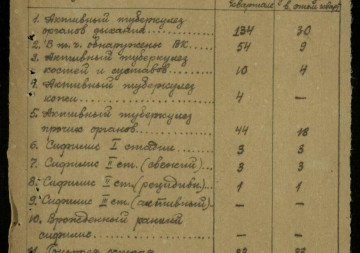 квартале в этом кварт.
1. Активный туберкулез
органов дыхания 134 30
2. В т.ч. обнаружены ВК 54 9
3. Активный туберкулез
костей и суставов 10 4
4. Активный туберкулез
кожи 4 —
5. Активный туберкулез
прочих органов 44 18
6. Сифилис I стадии 3 3
7. Сифилис II ст. (свежий) 3 3
8. Сифилис II ст. (рецидивы) 1 1
9. Сифилис III ст. (активный) — —
10. Врожденный ранний
сифилис — —